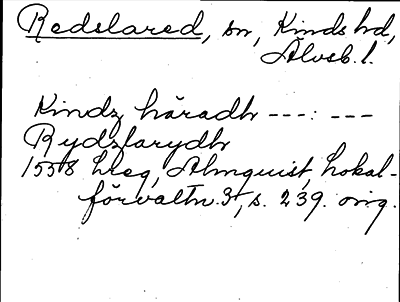 Redslared, sn, Kinds hd,
Älvsb. l.
Kindz häradh ---: ---
Rydzlarydh
1558 hleg, Almquist, Lokal-
förvaltn. 3, s. 239. orig.